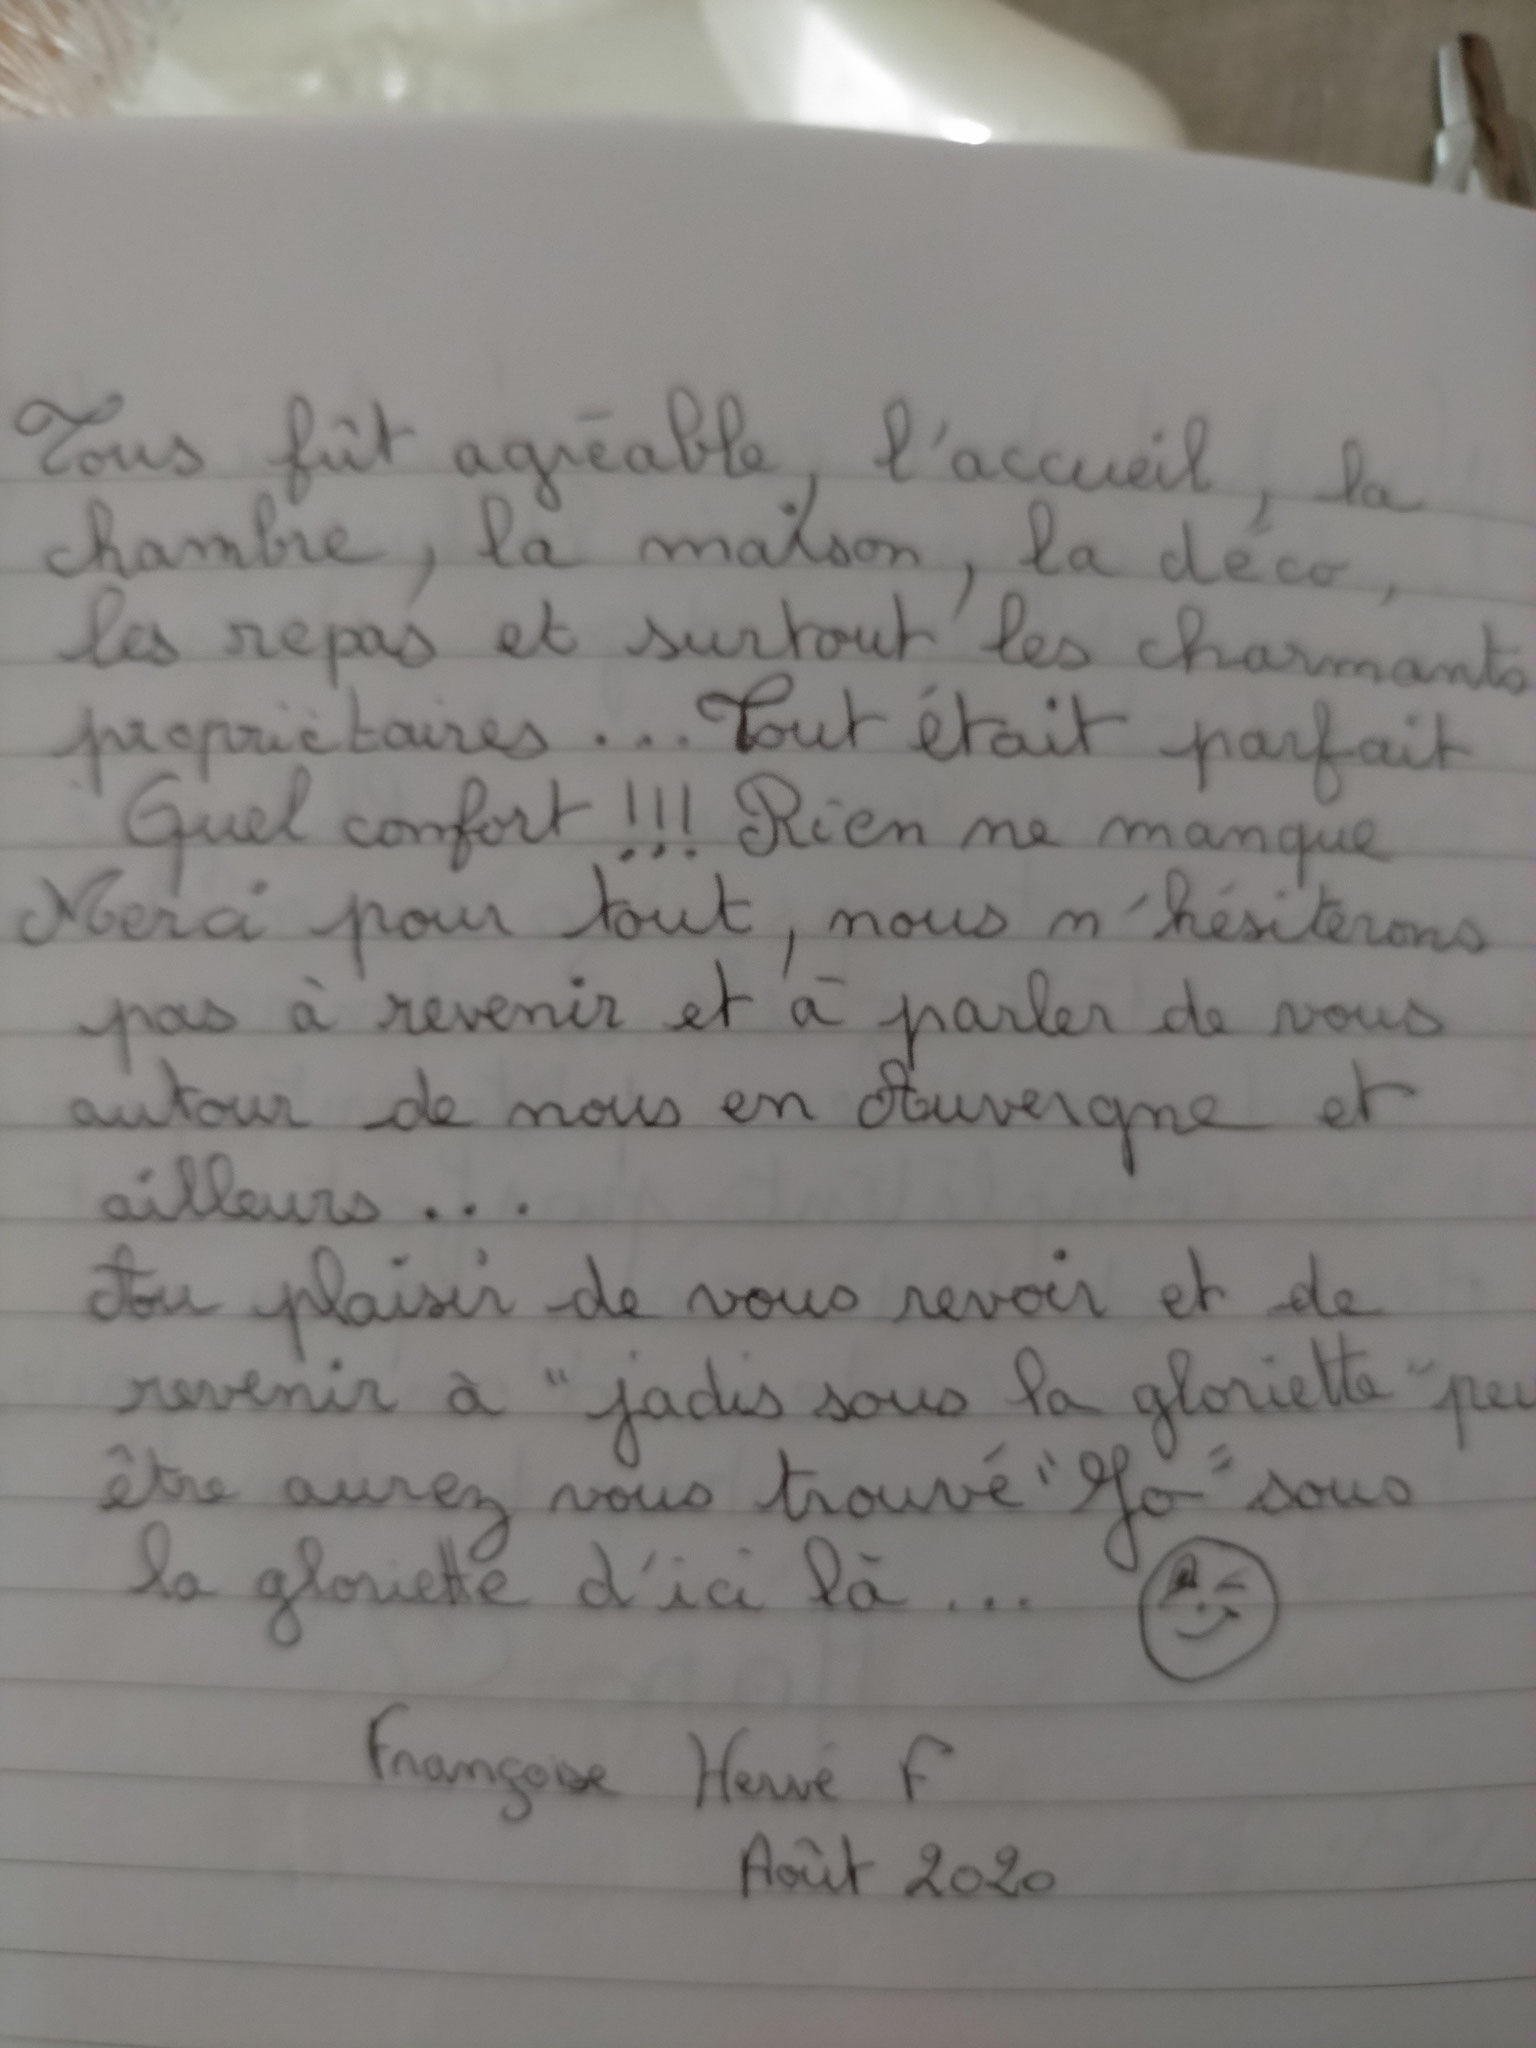 Tous fût agréable, l'accueil, la
chambre, la maison, la déco,
les repas et surtout les charmants
propriétaires ... Tout était parfait
Quel confort !!! Rien ne manque
Merci pour tout, nous n'hésiterons
pas à revenir et à parler de vous
autour de nous en Auvergne et
ailleurs ...
Au plaisir de vous revoir et de
revenir à "jadis sous la gloriette" peu
être aurez vous trouvé "Yo" sous
la gloriette d'ici là ...
Françoise Hervé F
Août 2020